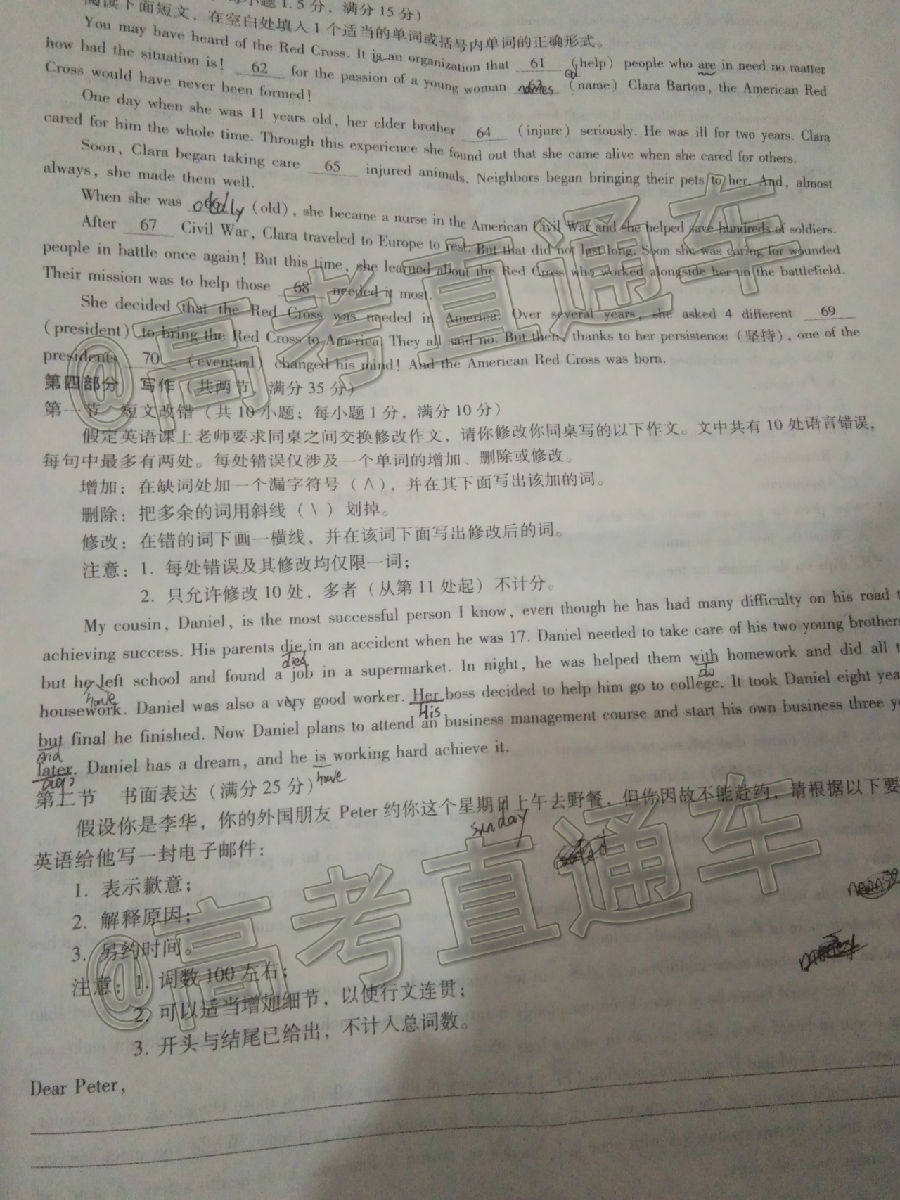 每小题1.5分，满分15分）
阅读下面短文，在空白处填入1个适当的单词或括号内单词的正确形式。
You may have heard of the Red Cross. It is an organization that 61 (help) people who are in need no matter
how bad the situation is! 62 for the passion of a young woman 63 (name) Clara Barton, the American Red
Cross would have never been formed!
One day when she was 11 years old, her elder brother 64 (injure) seriously. He was ill for two years. Clara
cared for him the whole time. Through this experience she found out that she came alive when she cared for others.
Soon, Clara began taking care 65 injured animals. Neighbors began bringing their pets to her. And, almost
always, she made them well.
When she was (old), she became a nurse in the American Civil War and she helped save hundreds of soldiers.
After 67 Civil War, Clara traveled to Europe to rest. But that did not last long. Soon she was caring for wounded
people in battle once again! But this time, she learned about the Red Cross who worked alongside her on the battlefield.
Their mission was to help those 68 needed it most.
She decided that the Red Cross was needed in America. Over several years, she asked 4 different 69
(president) to bring the Red Cross to America. They all said no. But then, thanks to her persistence (坚持), one of the
presidents 70 (eventual) changed his mind! And the American Red Cross was born.
第四部分 写作（共两节，满分35分）
第一节 短文改错（共10小题；每小题1分，满分10分）
假定英语课上老师要求同桌之间交换修改作文，请你修改你同桌写的以下作文。文中共有10处语言错误，
每句中最多有两处。每处错误仅涉及一个单词的增加、删除或修改。
增加：在缺词处加一个漏字符号（∧），并在其下面写出该加的词。
删除：把多余的词用斜线（\）划掉。
修改：在错的词下画一横线，并在该词下面写出修改后的词。
注意：1. 每处错误及其修改均仅限一词；
2. 只允许修改10处，多者（从第11处起）不计分。
My cousin, Daniel, is the most successful person I know, even though he has had many difficulty on his road
achieving success. His parents die in an accident when he was 17. Daniel needed to take care of his two young
died
but he left school and found a job in a supermarket. In night, he was helped them with homework and did all
have
do
housework. Daniel was also a very good worker. Her boss decided to help him go to college. It took Daniel eight
His
but final he finished. Now Daniel plans to attend an business management course and start his own business three
and
later. Daniel has a dream, and he is working hard achieve it.
ago
have
第二节 书面表达（满分25分）
假设你是李华，你的外国朋友 Peter 约你这个星期日上午去野餐，但你因故不能赴约，请根据以下要
sunday
英语给他写一封电子邮件：
1. 表示歉意；
2. 解释原因；
3. 另约时间。
注意：1. 词数100左右；
2. 可以适当增加细节，以使行文连贯；
3. 开头与结尾已给出，不计入总词数。
Dear Peter,
@高考直通车
@高考直通车